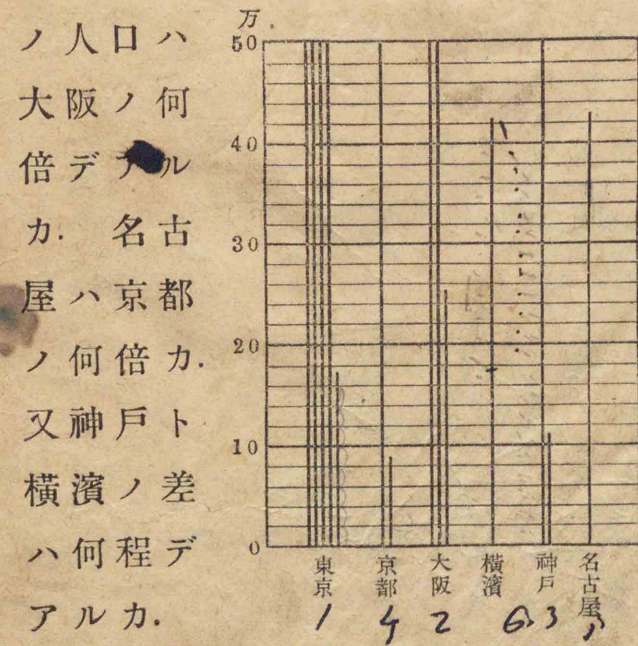 ノ人口ハ
大阪ノ何
倍デアル
カ. 名古
屋ハ京都
ノ何倍カ.
又神戸ト
横濱ノ差
ハ何程デ
アルカ.
万.
50
40
30
20
10
0
東京
京都
大阪
横濱
神戸
名古屋
1 4 2 6 3